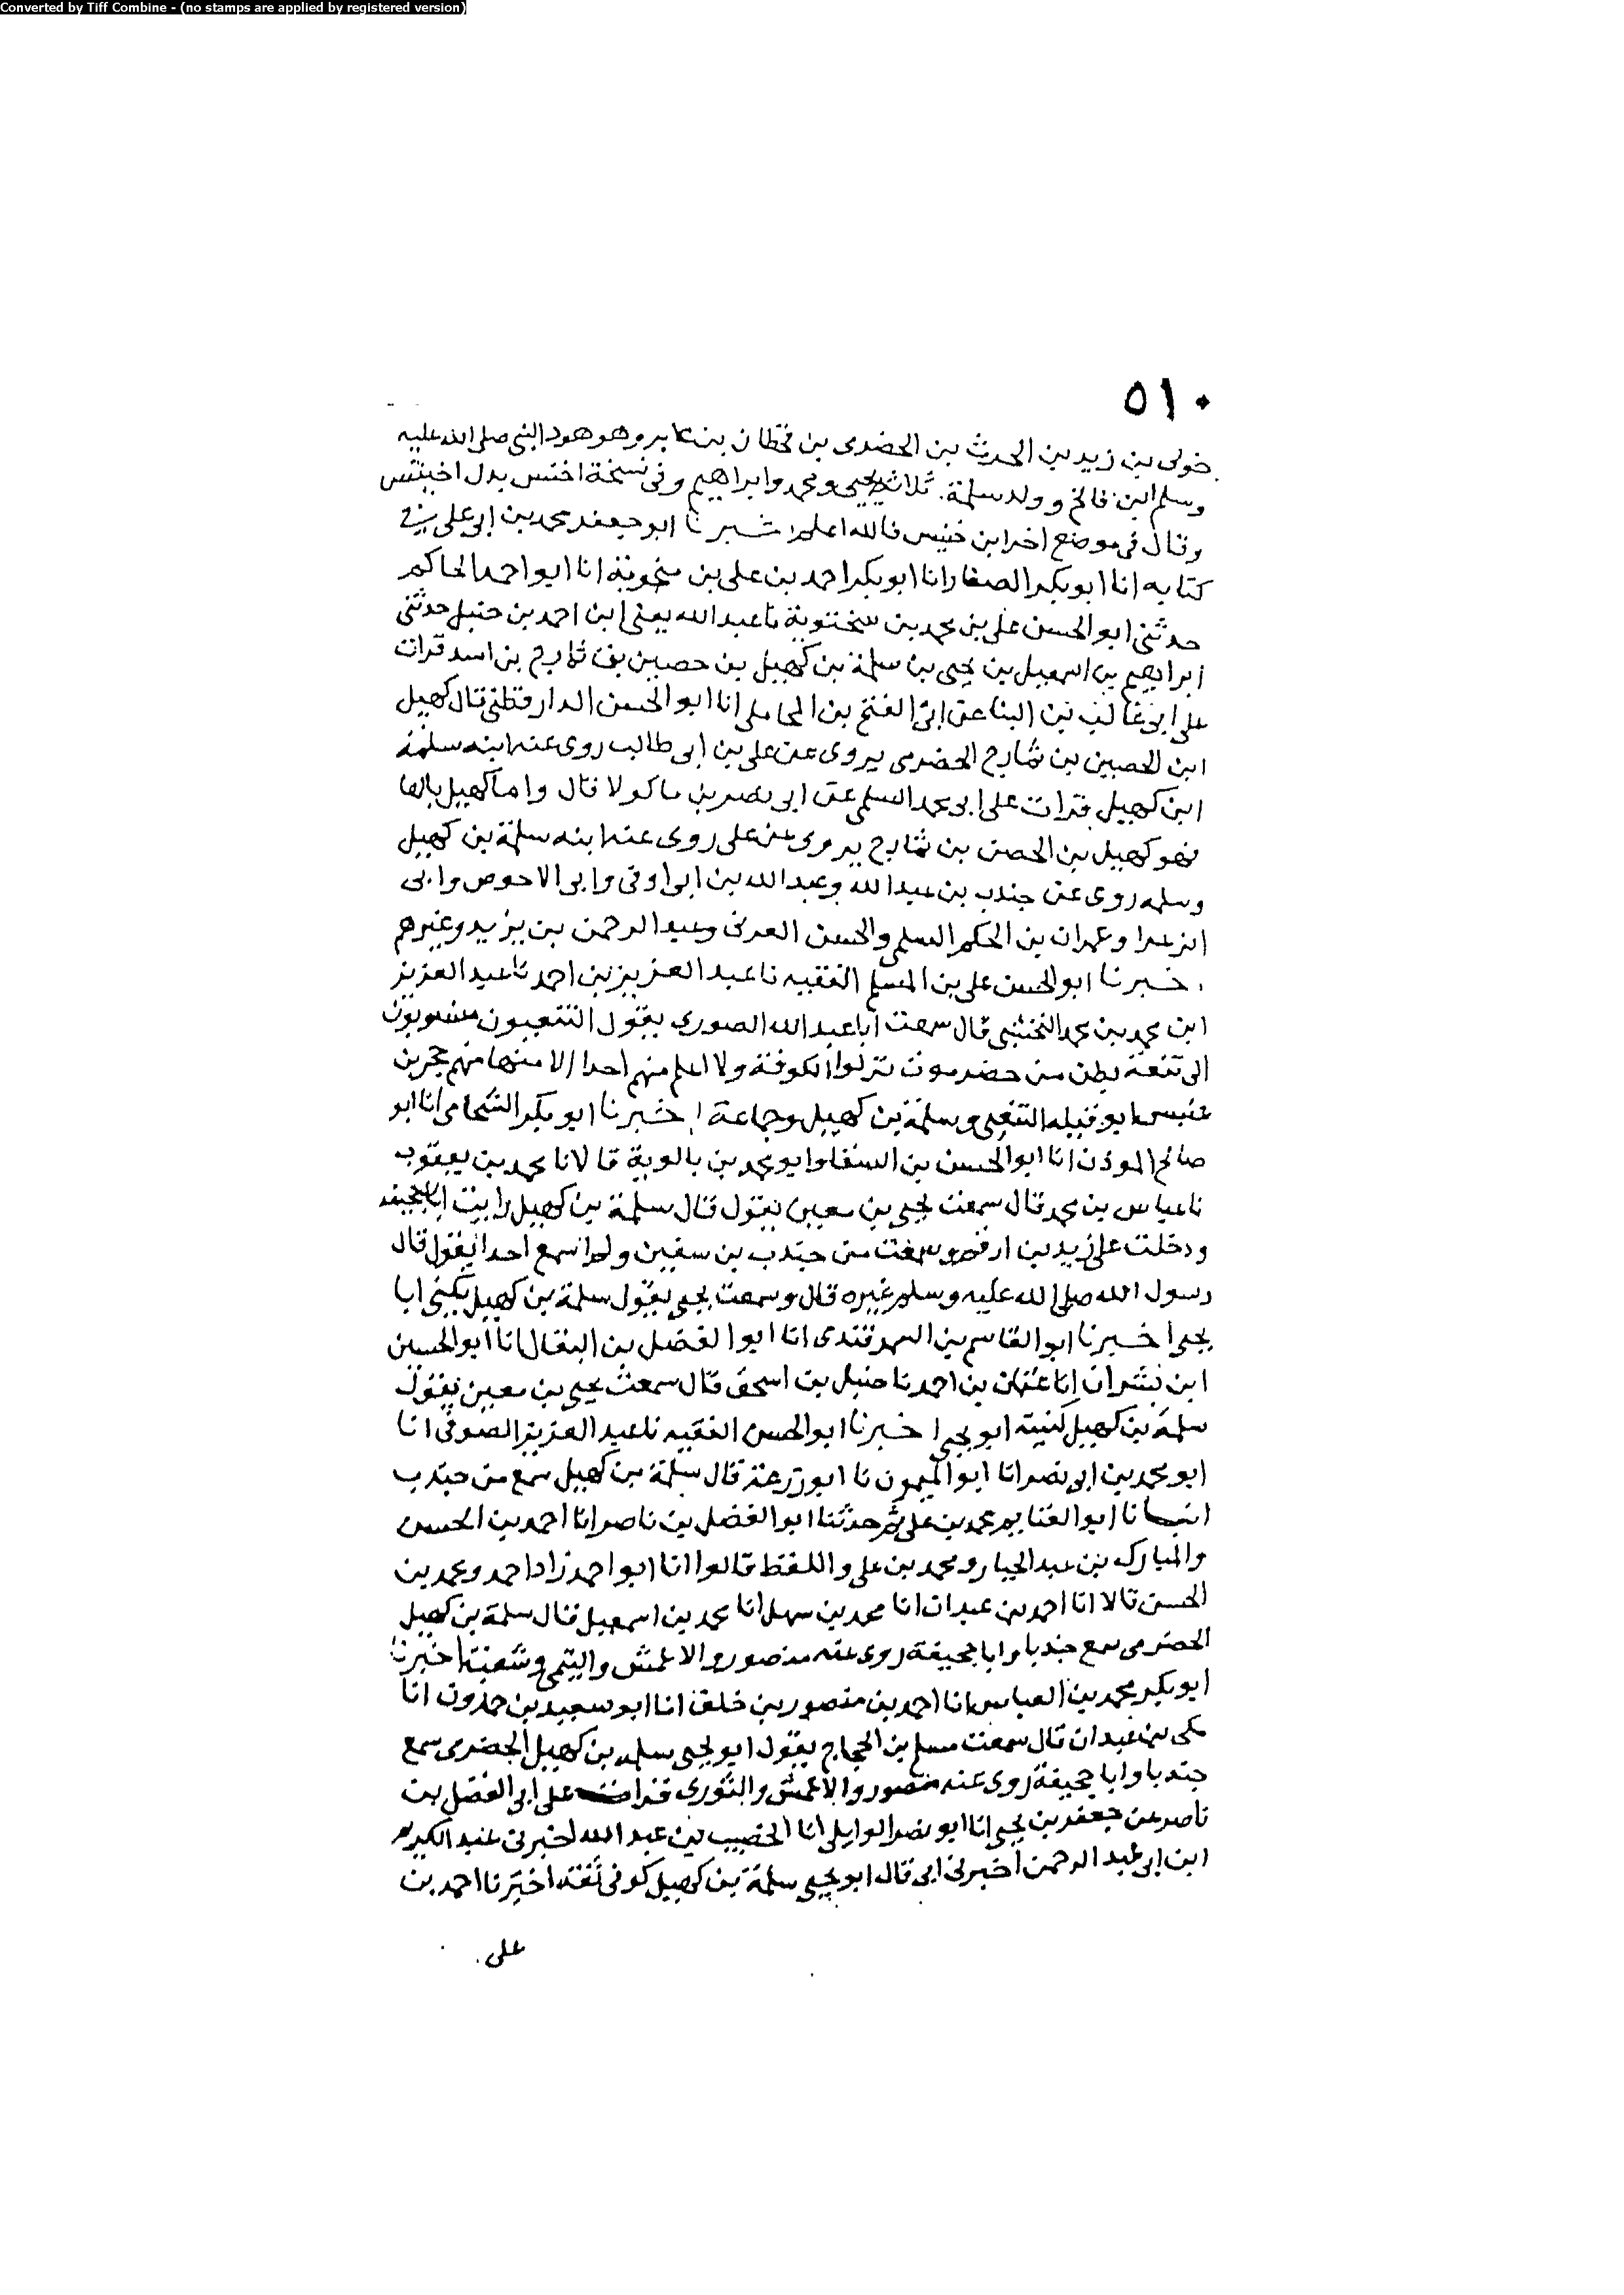 Converted by Tiff Combine - (no stamps are applied by registered version)
٥١٠
خولى بن زيد بن الحرث بن الحضرمى بن قحطان بن عابر وهو هود النبى صلى الله عليه
وسلم ابن فالخ وولد سلمة ثلاثة يحيى ومحمد وابراهيم وفى نسخة اخنس بدل
وقال فى موضع اخر ابن خنيس فالله اعلم ابو جعفر محمد بن ابى على فى
كتابه انا ابو بكر الصفار انا ابو بكر احمد بن على بن منجويه انا ابو احمد الحاكم
حدثنى ابو الحسن على بن محمد بن سختويه نا عبد الله يعنى ابن احمد بن حنبل حدثنى
ابراهيم بن اسمعيل بن يحيى بن سلمة بن كهيل بن حصين بن تمارح بن اسد قرات
على ابى غالب بن البنا عن ابى الفتح بن المحاملى انا ابو الحسن الدارقطنى قال كهيل
ابن الحصين بن تمارح الحضرمى يروى عن على بن ابى طالب روى عنه ابنه سلمة
ابن كهيل قرات على ابى محمد السلمى عن ابى نصر بن ماكولا قال واما كهيل بالها
فهو كهيل بن الحصن بن تمارح يروى عن على روى عنه ابنه سلمة بن كهيل
وسلمه روى عن جندب بن عبد الله وعبد الله بن ابى اوفى وابى الاحوص وابى
الزعرا وعمران بن الحكم السلمى والحسن العرنى وعبد الرحمن بن يزيد وغيرهم
اخبرنا ابو الحسن على بن المسلم الفقيه نا عبد العزيز بن احمد نا عبد العزيز
ابن محمد بن محمد النخشبى قال سمعت ابا عبد الله الصورى يقول التنعيون منسوبون
الى تنعة بطن من حضرموت نزلوا الكوفة ولا اعلم منهم احدا الا منها منهم حجر بن
عنبس ابو قبيله التنعى وسلمة بن كهيل وجماعة اخبرنا ابو بكر الشحامى انا ابو
صالح الموذن انا ابو الحسن بن السقا وابو محمد بن بالوية قالا نا محمد بن يعقوب
نا عباس بن محمد قال سمعت يحيى بن معين يقول قال سلمة بن كهيل رايت ابا جحيفه
ودخلت على زيد بن ارقم وسمعت من جندب بن سفين ولم اسمع احدا يقول قال
رسول الله صلى الله عليه وسلم غيره قال وسمعت يحيى يقول سلمة بن كهيل يكنى ابا
يحيى اخبرنا ابو القاسم بن السمرقندى انا ابو الفضل بن البقال انا ابو الحسين
ابن بشران انا عثمان بن احمد نا حنبل بن اسحق قال سمعت يحيى بن معين يقول
سلمة بن كهيل كنيته ابو يحيى اخبرنا ابو الحسن الفقيه نا عبد العزيز الصوفى انا
ابو محمد بن ابى نصر انا ابو الميمون نا ابو زرعة قال سلمة بن كهيل سمع من جندب
انبانا ابو الغنايم محمد بن على ثم حدثنا ابو الفضل بن ناصر انا احمد بن الحسن
والمبارك بن عبد الجبار ومحمد بن على واللفظ قالوا انا ابو احمد زاد احمد ومحمد بن
الحسن قالا انا احمد بن عبدان انا محمد بن سهل انا محمد بن اسمعيل قال سلمة بن كهيل
الحضرمى سمع جندبا وابا جحيفة روى عنه منصور والاعمش والتيمى وشعبة اخبرنا
ابو بكر محمد بن العباس انا احمد بن منصور بن خلف انا ابو سعيد بن حمدون انا
مكى بن عبدان قال سمعت مسلم بن الحجاج يقول ابو يحيى سلمه بن كهيل الحضرمى سمع
جندبا وابا جحيفة روى عنه منصور والاعمش والثورى قرات على ابى الفضل بن
ناصر عن جعفر بن يحيى انا ابو نصر الوايلى انا الخصيب بن عبد الله اخبرنى عبد الكريم
ابن ابى عبد الرحمن اخبرنى ابى قال ابو يحيى سلمة بن كهيل كوفى ثقة اخبرنا احمد بن
على